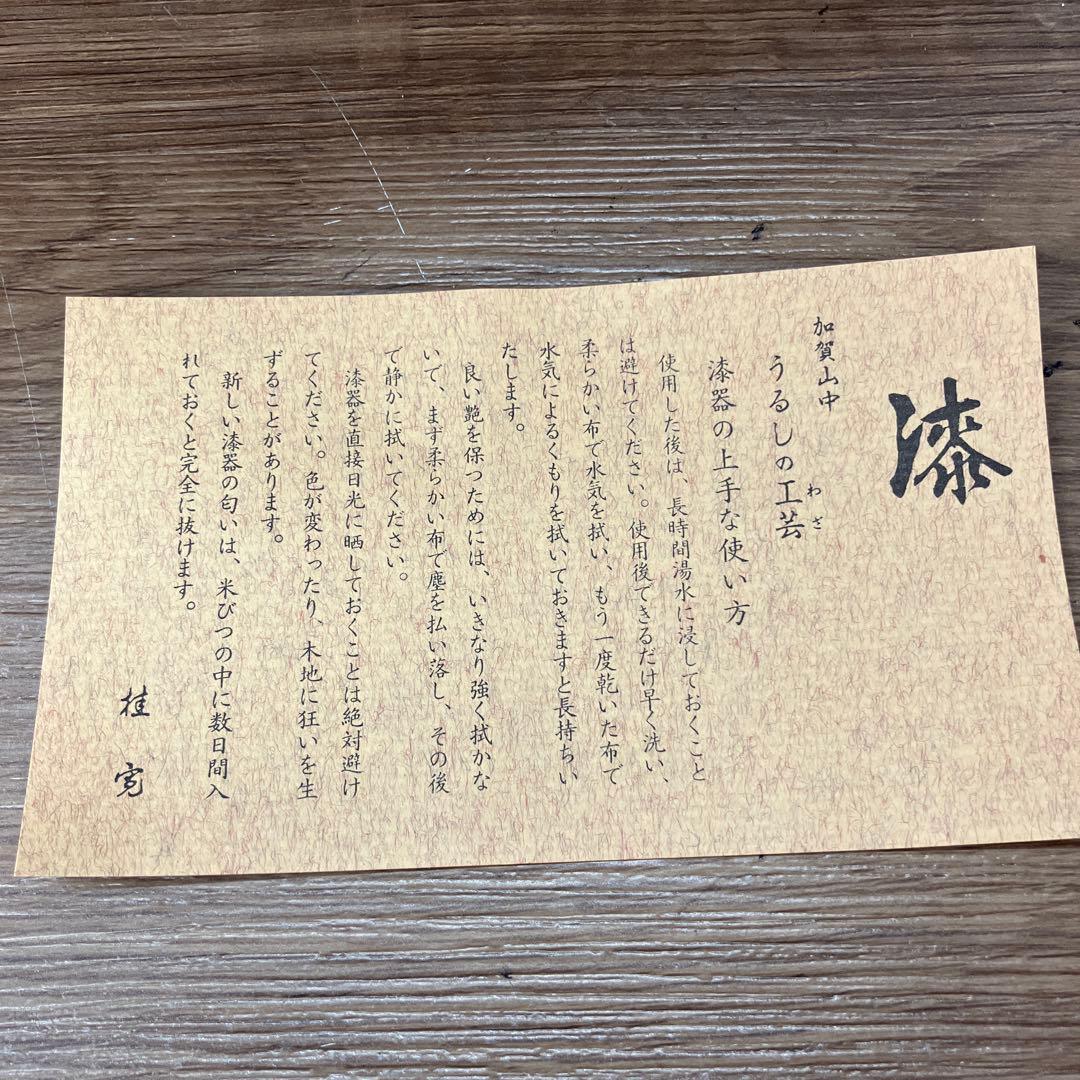 漆
加賀山中
うるしの工芸
わざ
漆器の上手な使い方
使用した後は、長時間湯水に浸しておくこと
は避けてください。使用後できるだけ早く洗い、
柔らかい布で水気を拭い、もう一度乾いた布で
水気によるくもりを拭いておきますと長持ちい
たします。
良い艶を保つためには、いきなり強く拭かな
いで、まず柔らかい布で塵を払い落し、その後
で静かに拭いてください。
漆器を直接日光に晒しておくことは絶対避け
てください。色が変わったり、木地に狂いを生
ずることがあります。
新しい漆器の匂いは、米びつの中に数日間入
れておくと完全に抜けます。
桂寛